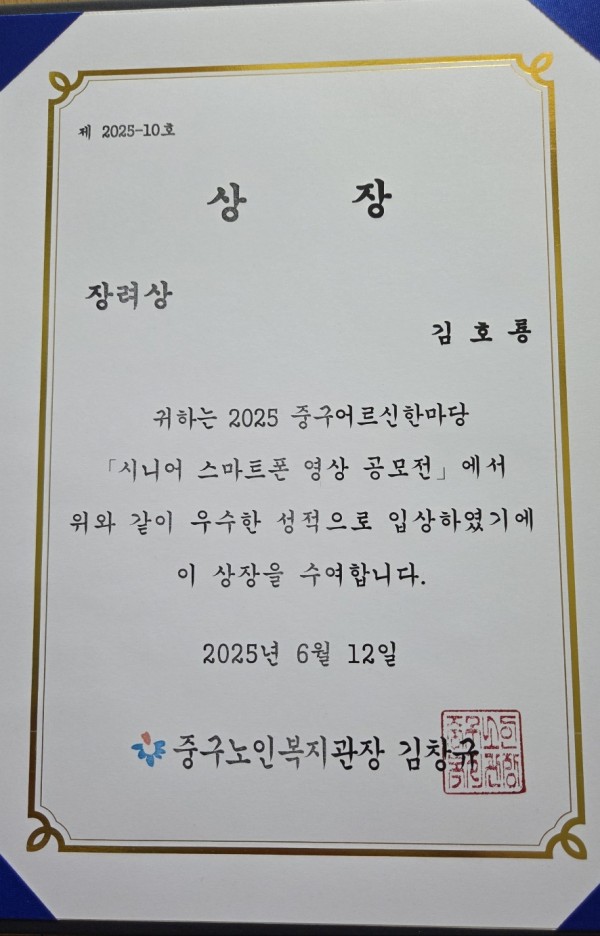 제 2025-10호
상 장
장려상
김 호 룡
귀하는 2025 중구어르신한마당
「시니어 스마트폰 영상 공모전」에서
위와 같이 우수한 성적으로 입상하였기에
이 상장을 수여합니다.
2025년 6월 12일
중구노인복지관장 김창규